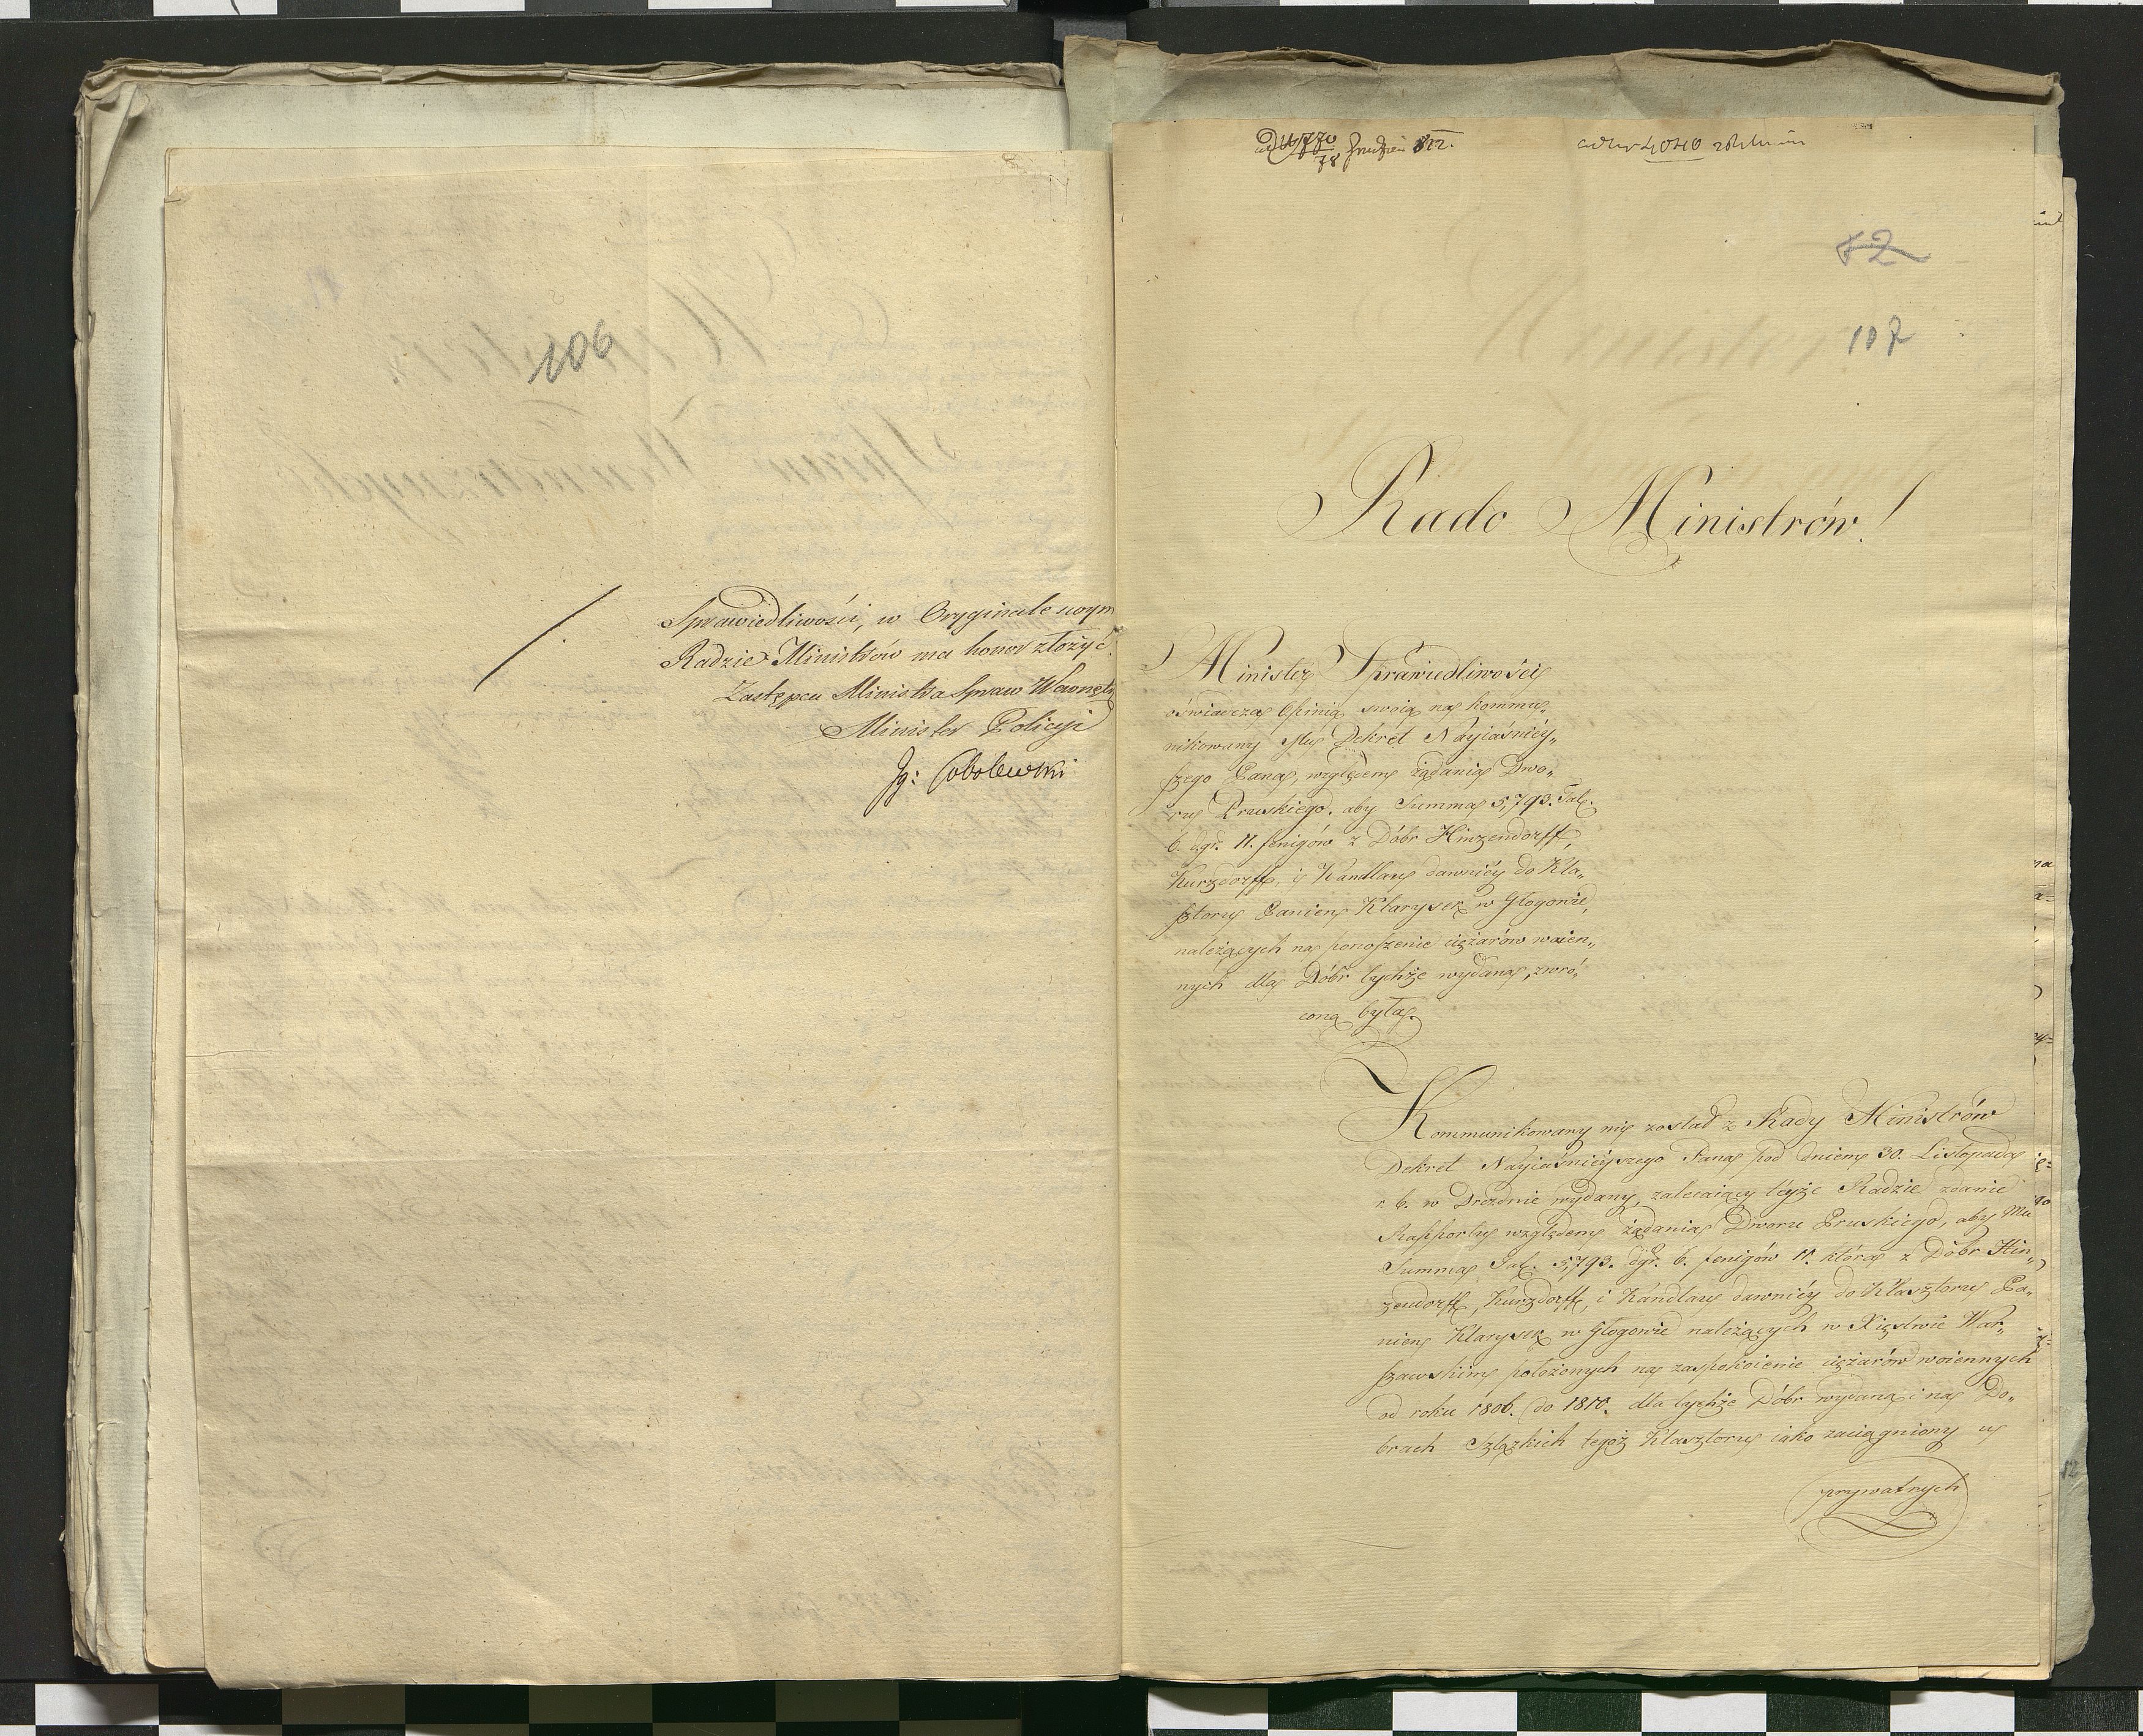 106
Sprawiedliwości, w Oryginale
Radzie Ministrów ma honor złożyć.
Zastępca Ministra Spraw Wewnętr
Minister Policyi
Jg: Sobolewski
812.
82
107
Rado Ministrów!
Minister Sprawiedliwości
oświadcza Opinią swoią na kommu„
nikowany Mu Dekret Nayiaśniéy„
szego Pana, względem żądania Dwo„
ru Pruskiego, aby Summa 5,793. Tal.
6. dgr. 11. fenigów z Dóbr Hinzendorff,
Kurzdorff, i Kandlau dawniéy do Kla„
sztoru Panien Klarysek w Głogowie,
należących na ponoszenie ciężarów woien„
nych dla Dóbr tychże wydana, zwró„
coną była.
Kommunikowany mi został z Rady Ministrów
Dekret Nayiaśniéyszego Pana pod dniem 30. Listopada
r. b. w Dreznie wydany, zalecaiący teyże Radzie zdanie
Rapportu względem żądania Dworu Pruskiego, aby Mu
Summa Tal. 5,793. dgr. 6. fenigów 11. która z Dóbr Hin„
zendorff, Kurzdorff, i Kandlau dawniéy do Klasztoru Pa„
nien Klarysek w Głogowie należących w Xięstwie War„
szawskim położonych na zaspokoienie ciężarów woiennych
od roku 1806. do 1810. dla tychże Dóbr wydana i na Do„
brach Szlązkich tegoż Klasztoru iako zaciągniony u
prywatnych